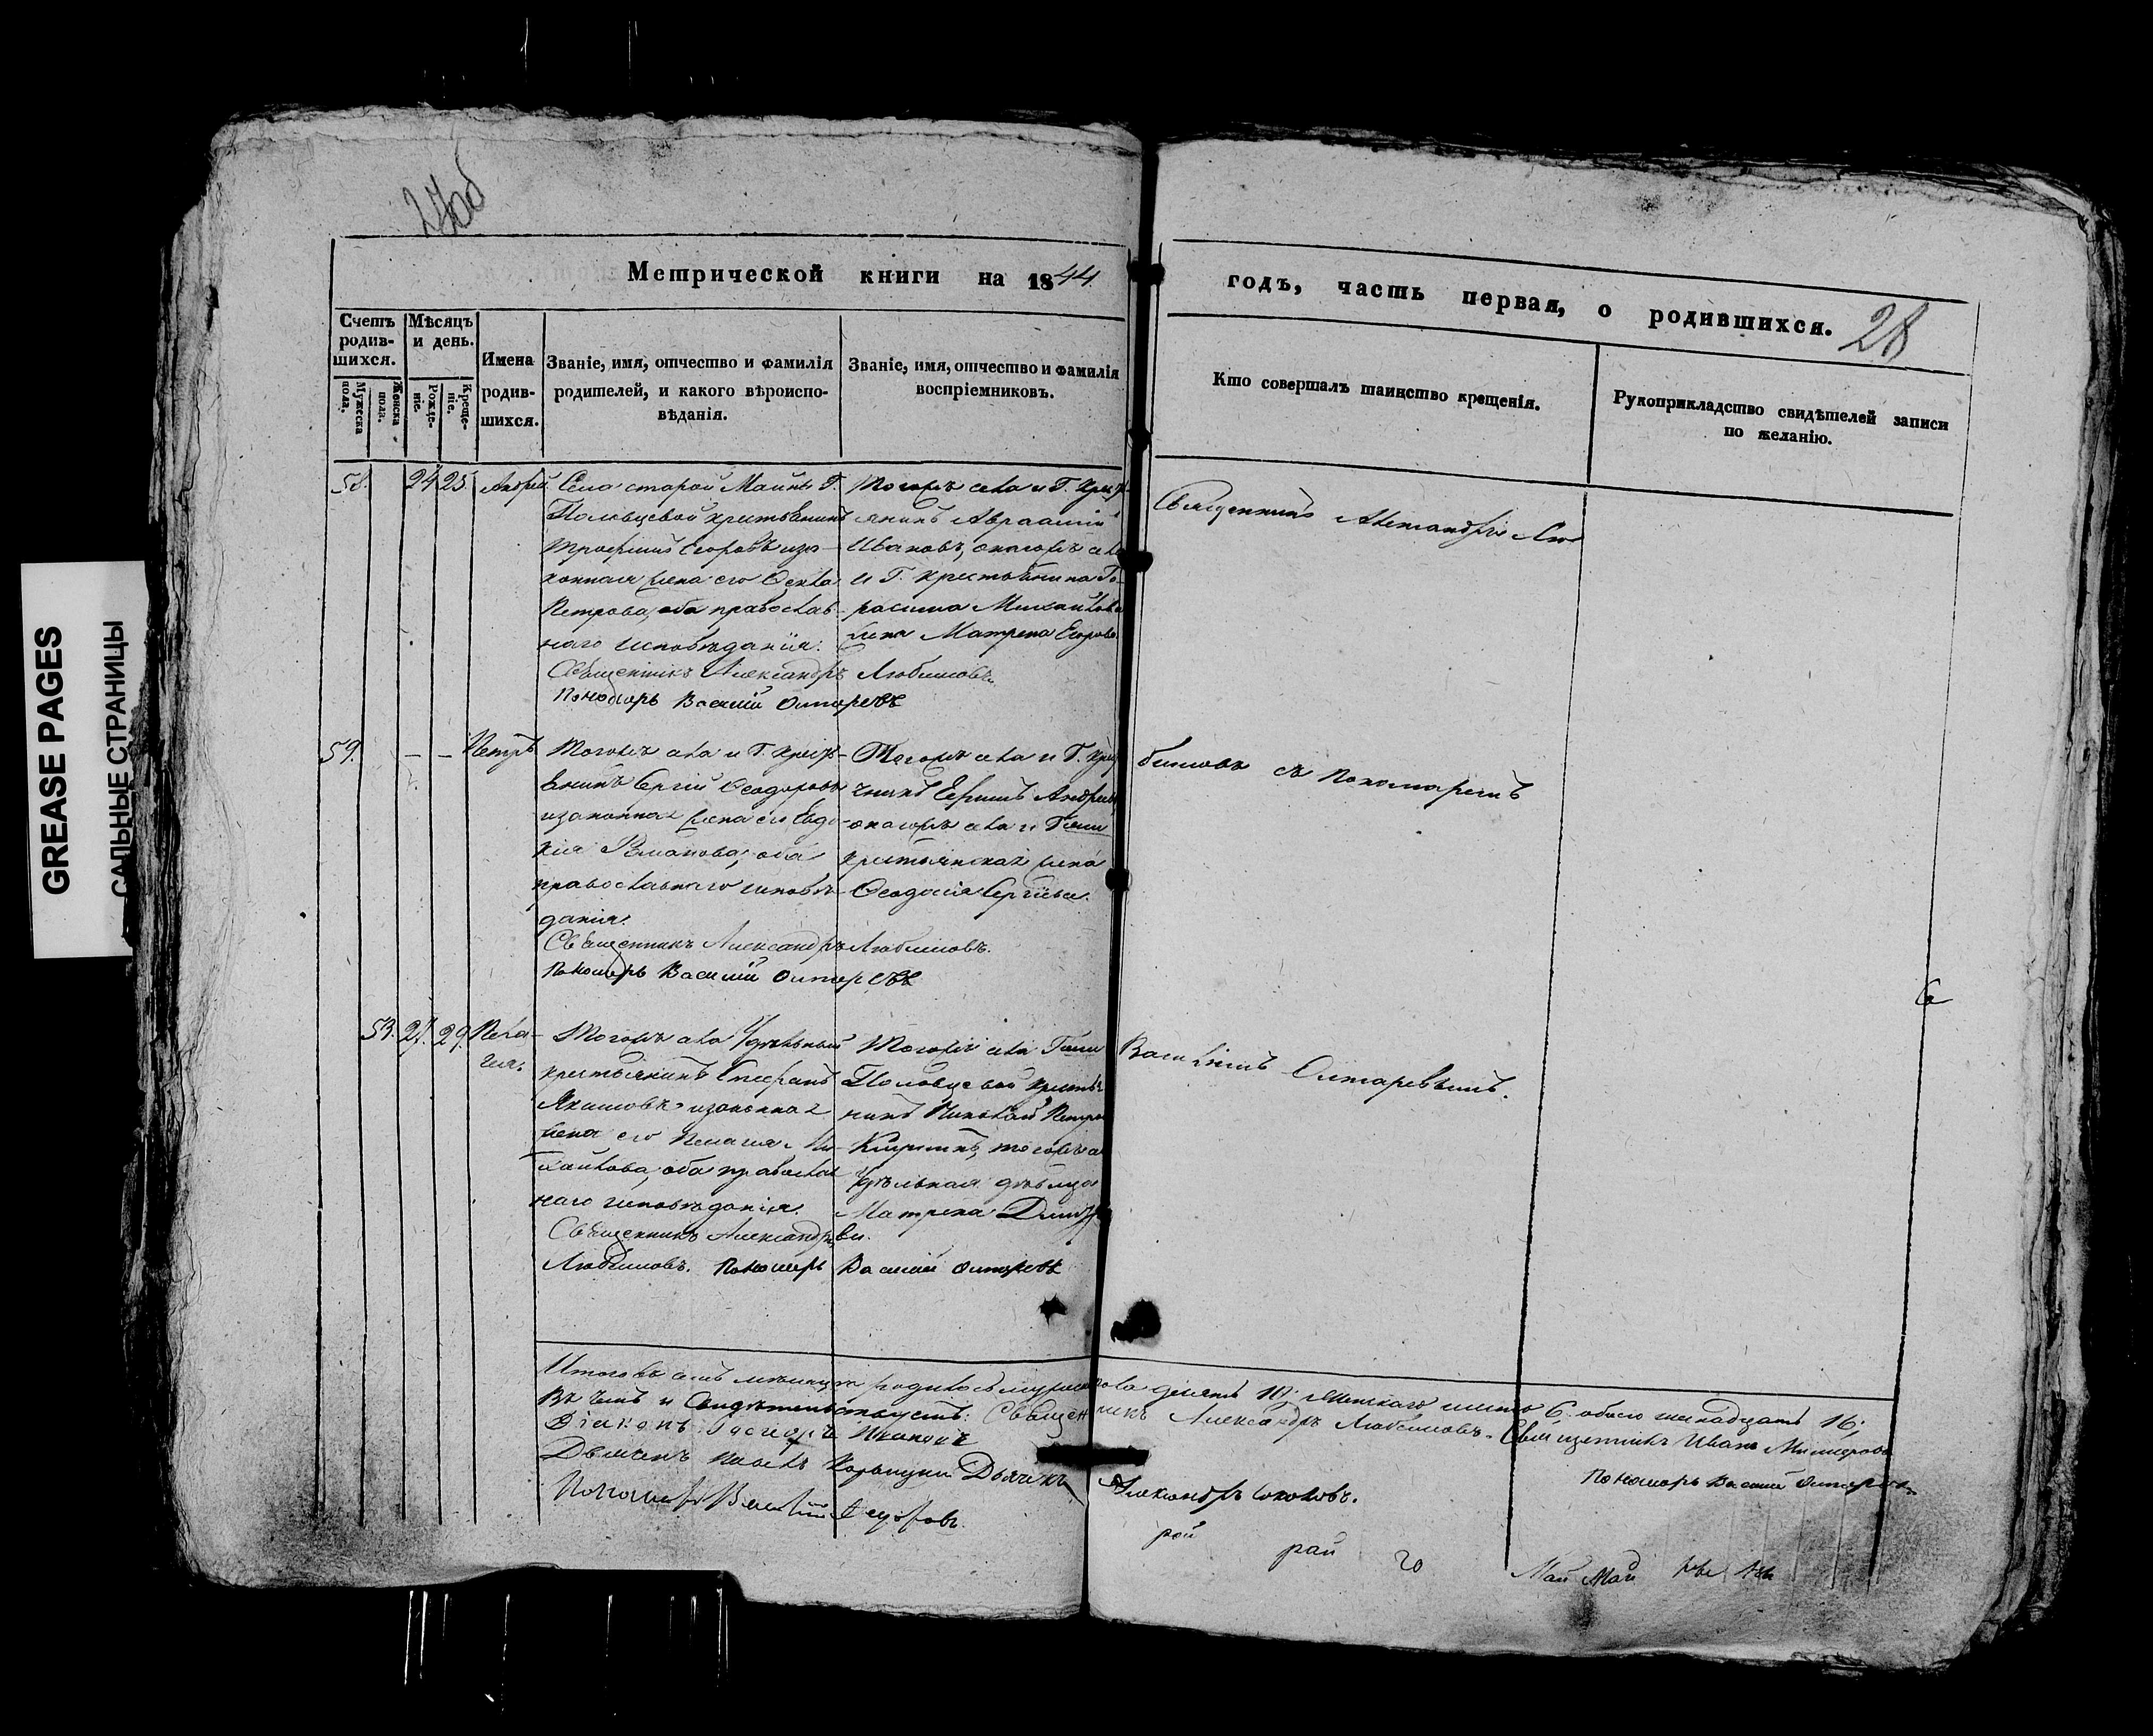 GREASE PAGES
САЛЬНЫЕ СТРАНИЦЫ
Метрической книги на 1844
годъ, часть первая, о родившихся. 28
Счетъ родившихся.
Мужеска пола.
Женска пола.
Мѣсяцъ и день.
Рожденіе.
Крещеніе.
Имена родившихся.
Званіе, имя, отчество и фамилія
родителей, и какого вѣроиспо-
вѣданія.
Званіе, имя, отчество и фамилія
воспріемниковъ.
Кто совершалъ таинство крещенія.
Рукоприкладство свидѣтелей записи
по желанію.
58. 24 25 Андрей
Села старой Майны Г.
Половцевой крестьянинъ
Трофимъ Егоровъ и за-
конная жена его Оекла
Петрова, оба православ-
наго исповѣданія:
Священникъ Александръ Любимовъ.
Пономарь Василій Олтаревъ
Тогожъ села и Г. крест-
янинъ Авраамій
Ивановъ, онагожъ села
и Г. крестьянина Ге-
расима Михайлова
жена Матрена Егорова.
Священникъ Александръ Лю-
59. - - Петръ
Тогожъ села и Г. крест-
янинъ Сергій Ѳеодоровъ
и законная жена его Евдо-
кія Романова, оба
православнаго исповѣ-
данія.
Священникъ Александръ Любимовъ.
Пономарь Василій Олтаревъ
Тогожъ села и Г. крест
янинъ Ефимъ Андреевъ
онагожъ села и Г-жи
крестьянская жена
Ѳеодосія Сергіева.
бимовъ съ пономаремъ
53. 27. 29. Пела-
гія.
Тогожъ села Удѣльный
крестьянинъ Стефанъ
Якимовъ и законная
жена его Пелагія Ми-
хайлова, оба православ
наго исповѣданія.
Священникъ Александръ
Любимовъ. Пономарь Василій Олтаревъ
Тогожъ села Г-жи
Половцевой крестья
нинъ Николай Петровъ
тогожъ села
Удѣльная дѣвица
Матрена Дмитрі
ева.
Василіемъ Олтаревымъ.
Итого въ семъ мѣсяцѣ родилось мужескаго десять 10, женскаго шесть 6, обоего шестнадцать 16;
Въ чемъ и свидѣтельствуетъ: Священникъ Александръ Любимовъ. Священникъ Иванъ
Діаконъ Григорій Ивановъ
Дьячекъ Дьячекъ Александръ Соколовъ.
Пономарь Василій Олтаревъ
Пономарь Василій
рой рай го Май Май